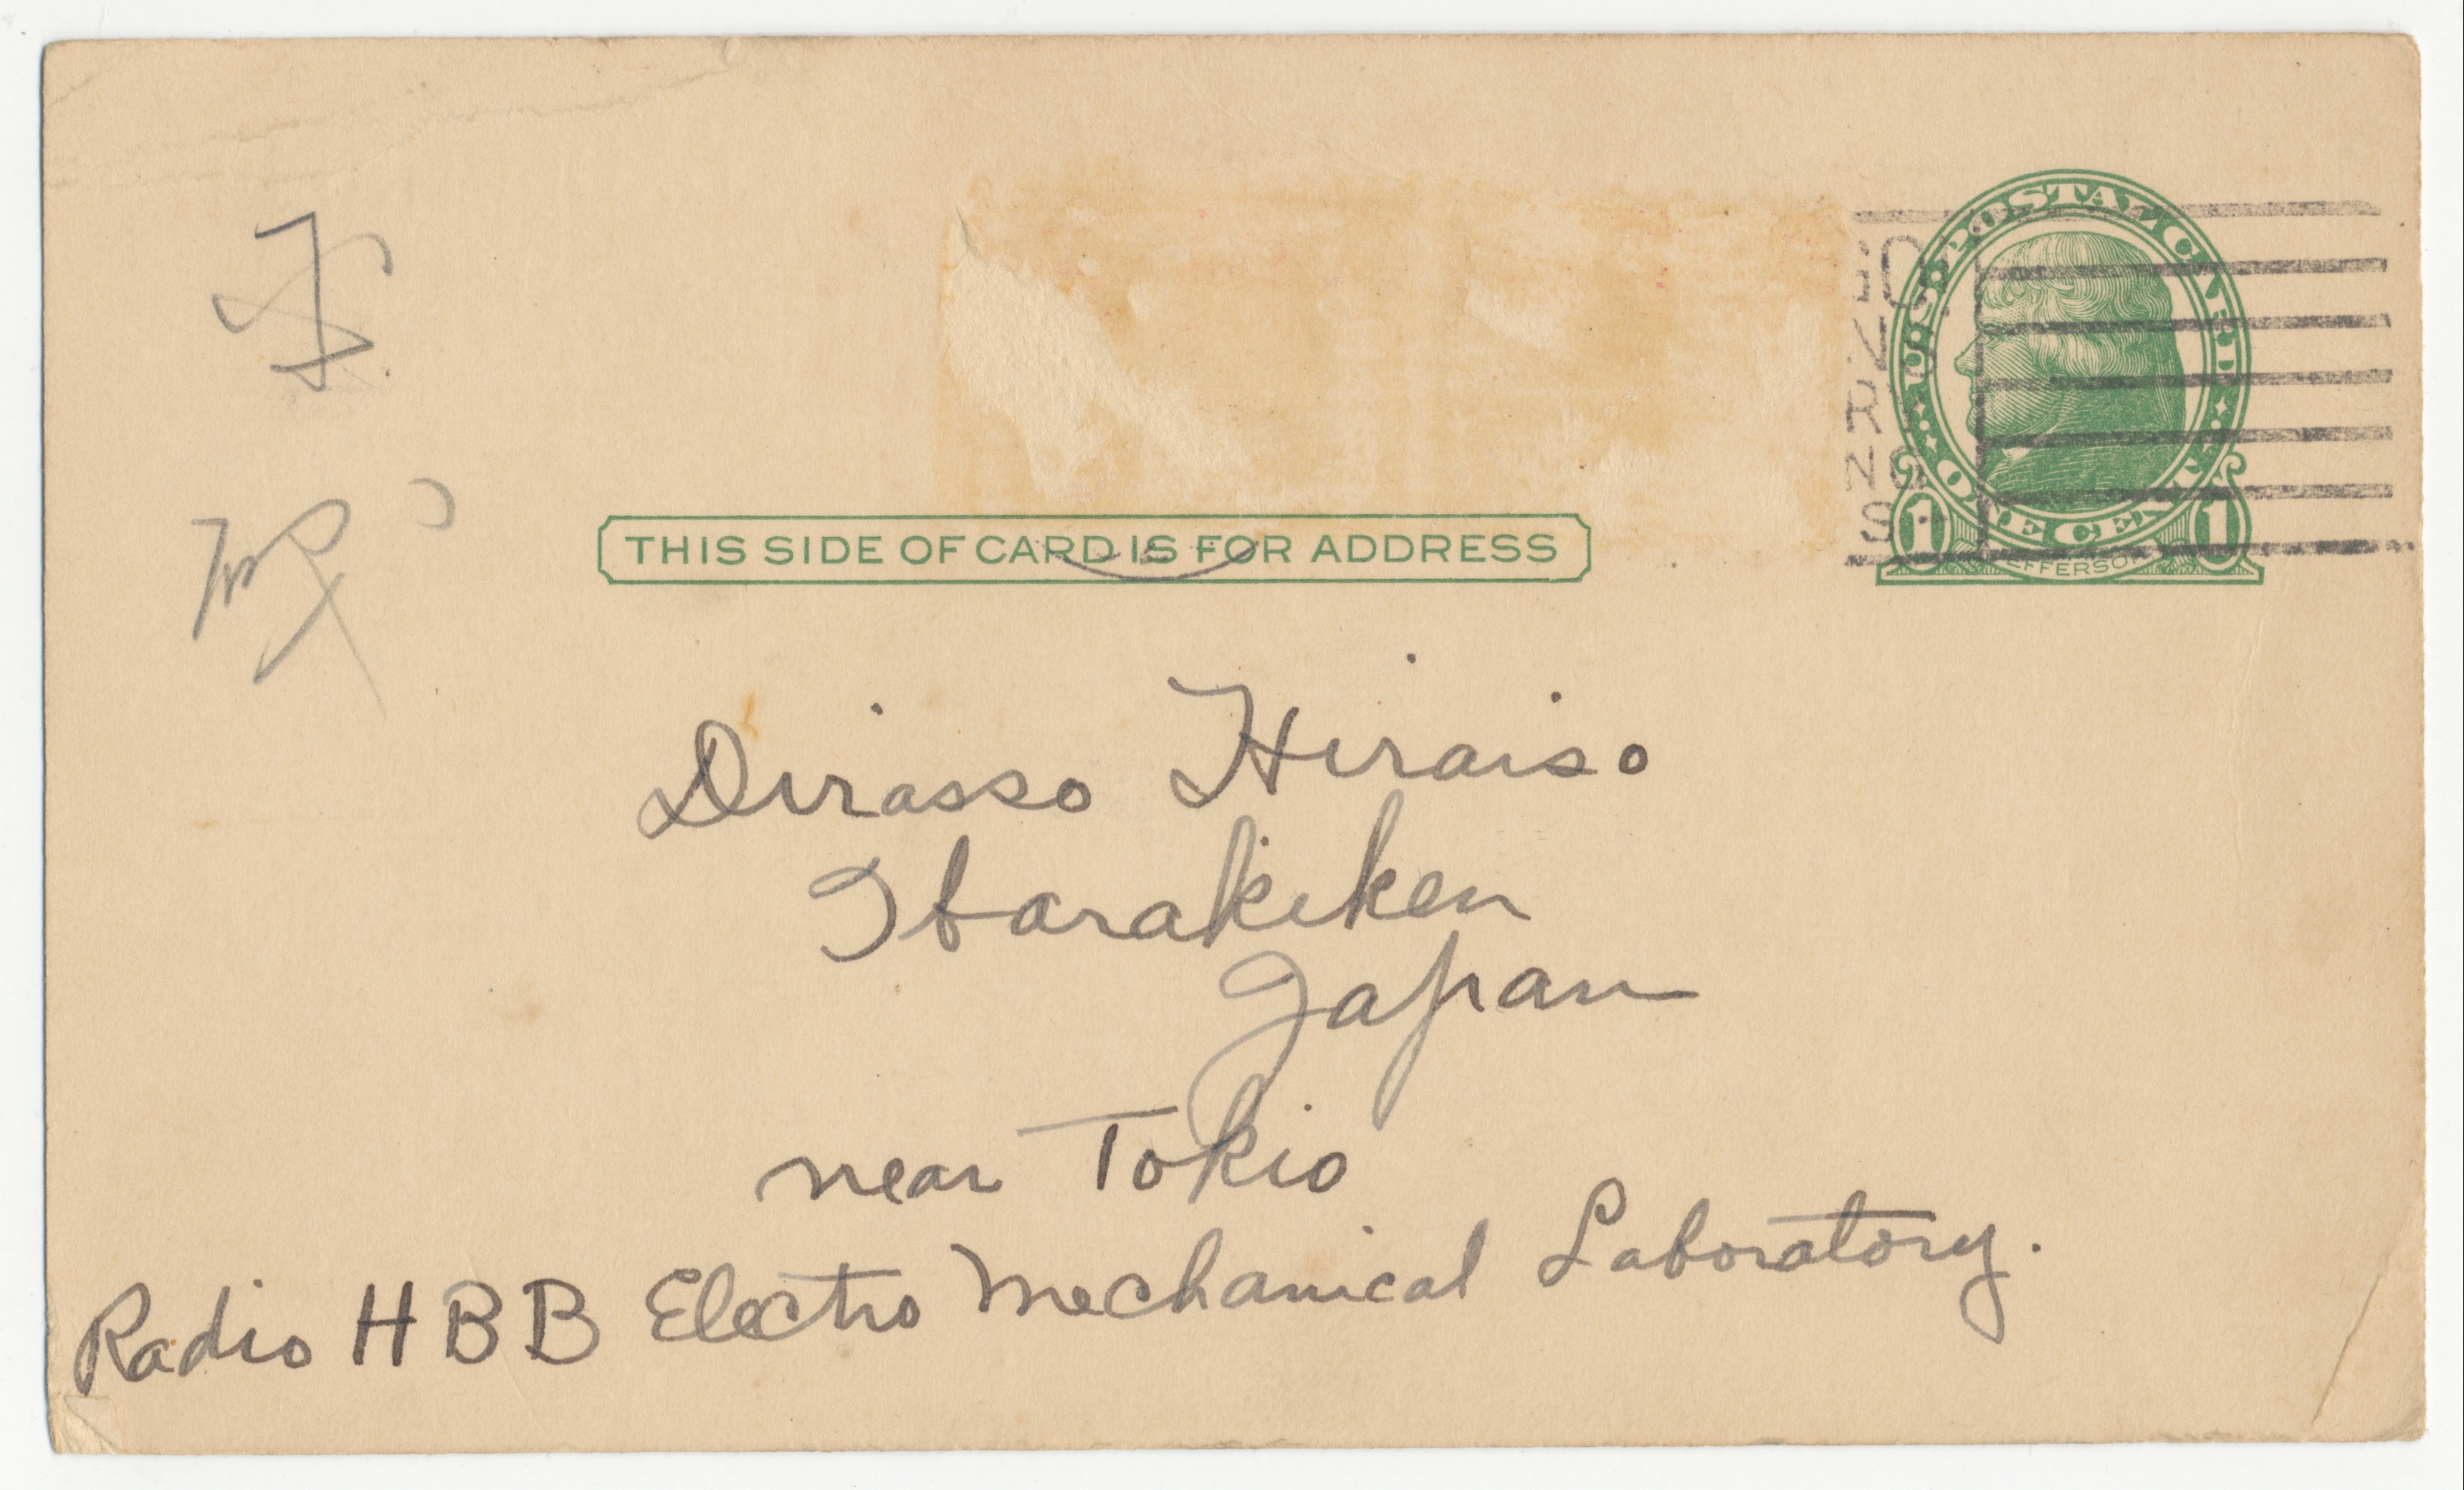 U.S. POSTAL CARD
ONE CENT
1 1
JEFFERSON
THIS SIDE OF CARD IS FOR ADDRESS
Dirasso Hiraiso
Ibarakiken
Japan
near Tokio
Radio HBB Electro Mechanical Laboratory.